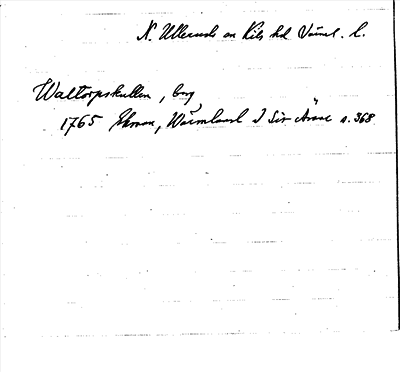 N. Ulleruds sn Kils hd Värml. l.
Waltorpskullen, berg
1765 Ekman, Wärmland I Sin Ämne s. 368